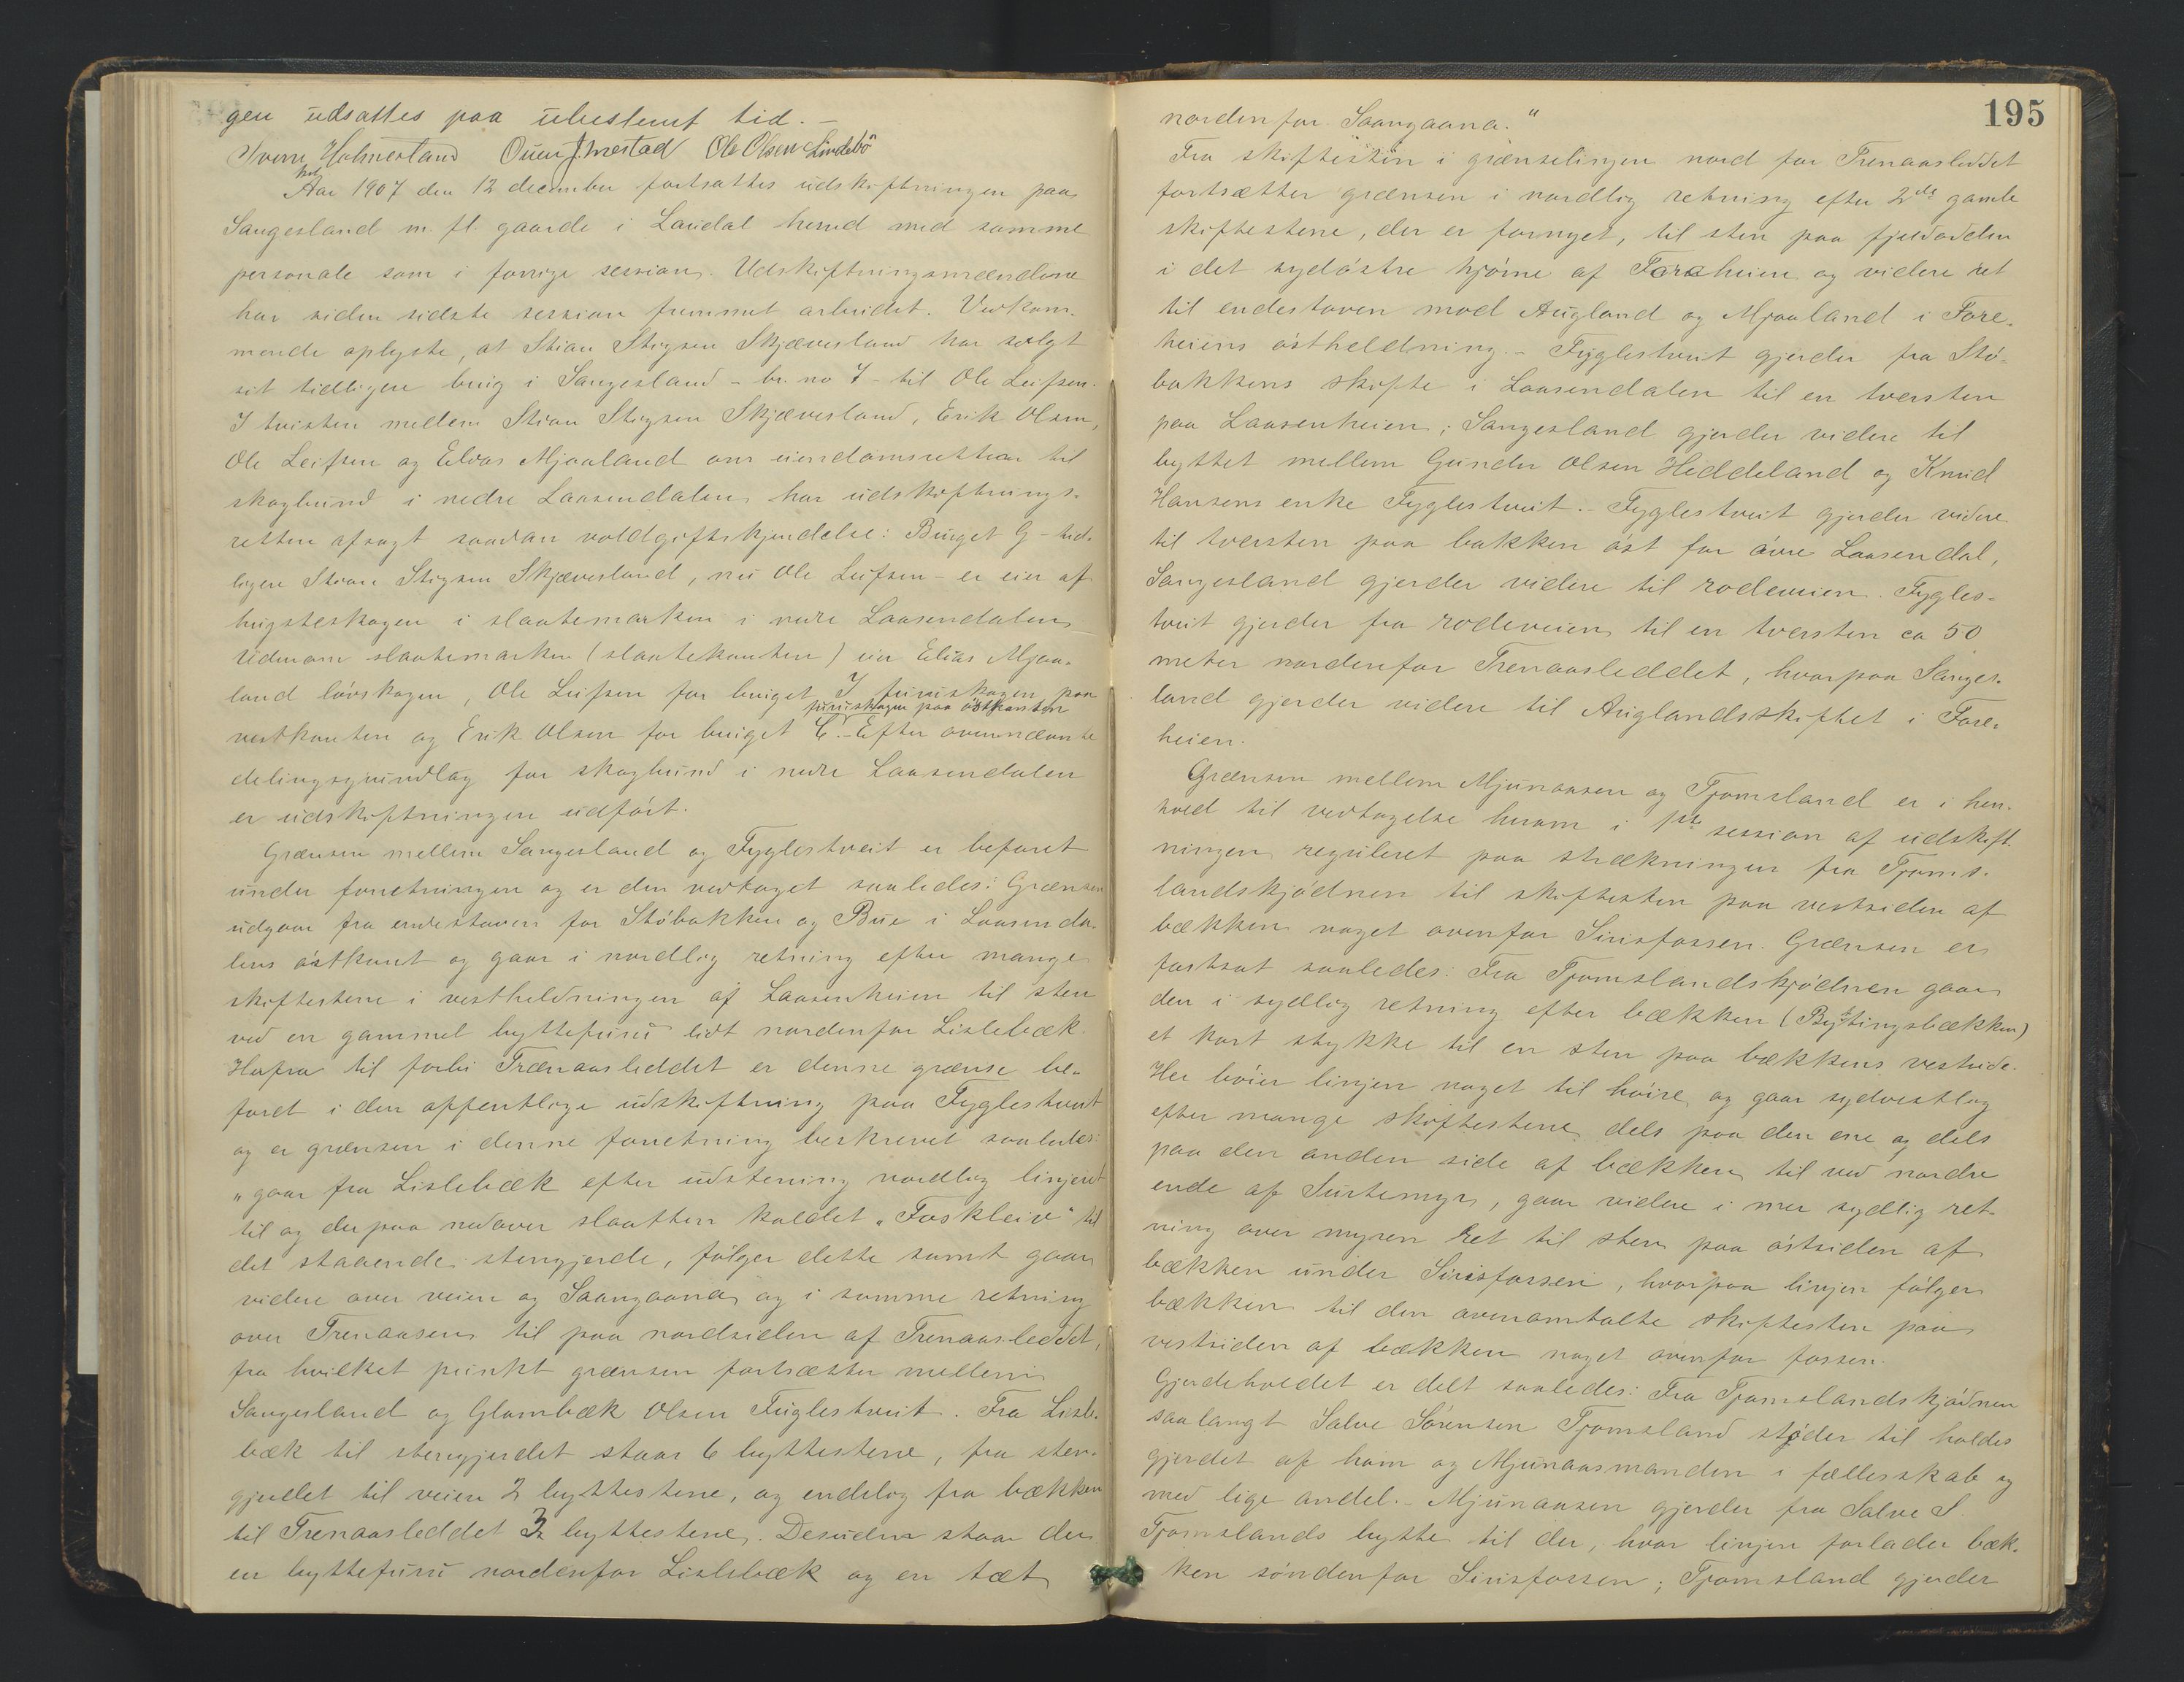 gen udsattes paa ubestemt tid. –
Sverre Holmesland Ouen J. Imestad Ole Olsen Lindebö
Aar 1907 den 12 december fortsattes udskiftningen paa
Sangesland m. fl. gaarde i Laudal herred med samme
personale som i forrige session. Udskiftningsmændene
har siden sidste session fremmet arbeidet. Vedkom-
mende oplyste, at Stian Stigsen Skjævesland har solgt
sit tidligere brug i Sangesland – br. no 7 – til Ole Leifsen.
I tvisten mellem Stian Stigsen Skjævesland, Erik Olsen,
Ole Leifsen og Elias Mjaaland om eiendomsretten til
skogbund i nedre Laasendalen har udskiftnings-
retten afsagt saadan voldgiftskjendelse: Bruget G – tid-
ligere Stian Stigsen Skjævesland, nu Ole Leifsen – er eier af
hugsteskogen i slaatemarken i nedre Laasendalen
Udenom slaatemarken (slaatekanten) eier Elias Mjaa-
land lövskogen, Ole Leifsen for bruget I furuskogen paa
furuskogen paa östkanten
vestkanten og Erik Olsen for bruget C. – Efter ovennævnte
delingsgrundlag for skogbund i nedre Laasendalen
er udskiftningen udfört.
Grænsen mellem Sangesland og Fyglestveit er befaret
under forretningen og er den vedtaget saaledes: Grænsen
udgaar fra endestaven for Stöbakken og Bue i Laasenda-
lens östkant og gaar i nordlig retning efter mange
skiftestene i vestheldningen af Laasenheien til sten
ved en gammel byttefuru lidt nordenfor Lislebæk.
Herfra til forbi Trænaasleddet er denne grænse be-
faret i den offentlige udskiftning paa Fyglestveit
og er grænsen i denne forretning beskrevet saaledes:
„gaar fra Lislebæk efter udstening nordlig linjeret
til og derpaa nedover slaatten kaldet „Foskleiv“ til
det staaende stengjerde, fölger dette samt gaar
videre over veien og Saangaana og i samme retning
over Trenaasen til paa nordsiden af Trenaasleddet,
fra hvilket punkt grænsen fortsætter mellem
Sangesland og Glambæk Olsen Fuglestveit. Fra Lisle-
bæk til stengjerdet staar 6 byttestene, fra sten-
gjerdet til veien 2 byttestene, og endelig fra bækken
til Trenaasleddet 3 byttestene. Desuden staar der
en byttefuru nordenfor Lislebæk og en tæt
195
nordenfor Saangaana.“
Fra skiftestén i grænselinjen nord for Trenaasleddet
fortsætter grænsen i nordlig retning efter 2de gamle
skiftestene, der er fornyet, til sten paa fjeldodden
i det sydöstre hjörne af Foreheien og videre ret
til endestaven mod Augland og Mjaaland i Fore-
heiens östheldning. – Fyglestveit gjerder fra Stö-
bakkens skifte i Laasendalen til en tversten
paa Laasenheien; Sangesland gjerder videre til
byttet mellem Gunder Olsen Heddeland og Knud
Hansens enke Fyglestveit. – Fyglestveit gjerder videre
til tversten paa bakken öst for övre Laasendal,
Sangesland gjerder videre til rodeveien. Fygles-
tveit gjerder fra rodeveien til en tversten ca 50
meter nordenfor Trenaasleddet, hvorpaa Sanges-
land gjerder videre til Auglandsskiftet i Fore-
heien.
Grænsen mellem Mjunaasen og Tjomsland er i hen-
hold til vedtagelse herom i 1ste session af udskift-
ningen reguleret paa strækningen fra Tjoms-
landskjödnen til skiftesten paa vestsiden af
bækken noget ovenfor Sirisfossen. Grænsen er
fortsat saaledes: Fra Tjomslandskjödnen gaar
den i sydlig retning efter bækken (Bystingsbækken)
et kort stykke til en sten paa bækkens vestside.
Her böier linjen noget til höire og gaar sydvestlig
efter mange skiftestene, dels paa den ene og dels
paa den anden side af bækken, til ved nordre
ende af Surtemyr, gaar videre i mer sydlig ret-
ning over myren ret til sten paa östsiden af
bækken under Sirisfossen, hvorpaa linjen fölger
bækken til den ovenomtalte skiftesten paa
vestsiden af bækken noget ovenfor fossen.
Gjerdeholdet er delt saaledes: Fra Tjomslandskjödnen
saalangt Salve Sörensen Tjomsland stöder til holdes
gjerdet af ham og Mjunaasmanden i fællesskab og
med lige andel. – Mjunaasen gjerder fra Salve S.
Tjomslands bytte til der, hvor linjen forlader bæk-
ken söndenfor Sirisfossen; Tjomsland gjerder